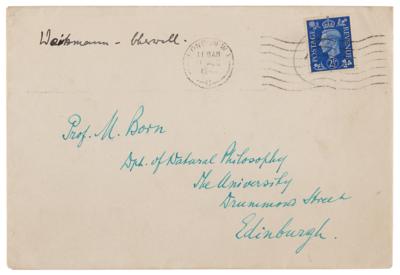 Weizmann - Cherwell.
LONDON
POSTAGE
REVENUE
Prof. M. Born
Dpt. of Natural Philosophy
The University
Drummond Street
Edinburgh.